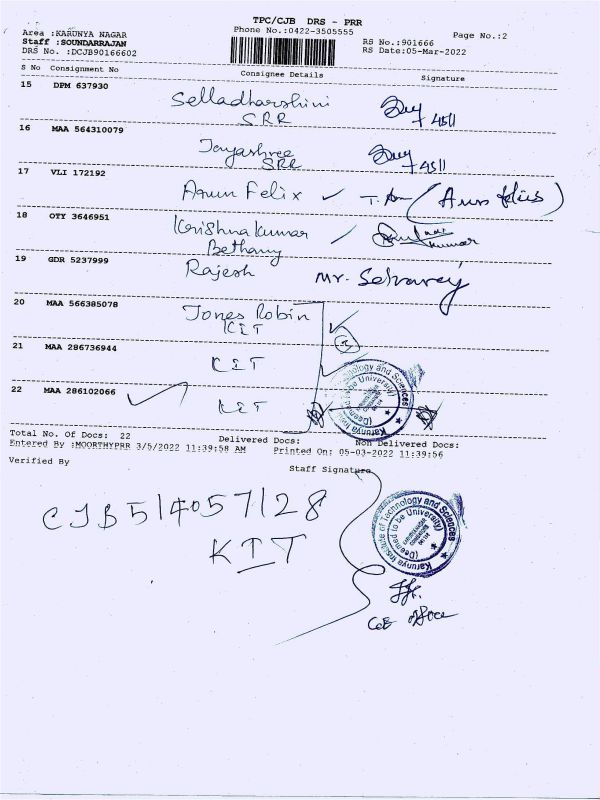 TPC/CJB DRS - PRR
Area :KARUNYA NAGAR
Phone No.:0422-3505555
Page No.:2
Staff :SOUNDARRAJAN
RS No.:901666
DRS No. :DCJB90166602
RS Date:05-Mar-2022
S No Consignment No Consignee Details Signature
15 DPM 637930
Selladharshini
SRR
16 MAA 564310079
Jayashree
SRR
17 VLI 172192
Arun Felix
18 OTY 3646951
Krishna Kumar
Bethany
kumar
19 GDR 5237999
Rajesh
Mr. Selvaraj
20 MAA 566385078
Jones Robin
KIT
21 MAA 286736944
KIT
22 MAA 286102066
KIT
Karunya Institute of Technology and Sciences
(Deemed to be University)
Total No. Of Docs: 22 Delivered Docs: Non Delivered Docs:
Entered By :MOORTHYPRR 3/5/2022 11:39:58 AM Printed On: 05-03-2022 11:39:56
Verified By
Staff Signature
CJB514057128
KIT
Karunya Institute of Technology and Sciences
(Deemed to be University)
CoE office